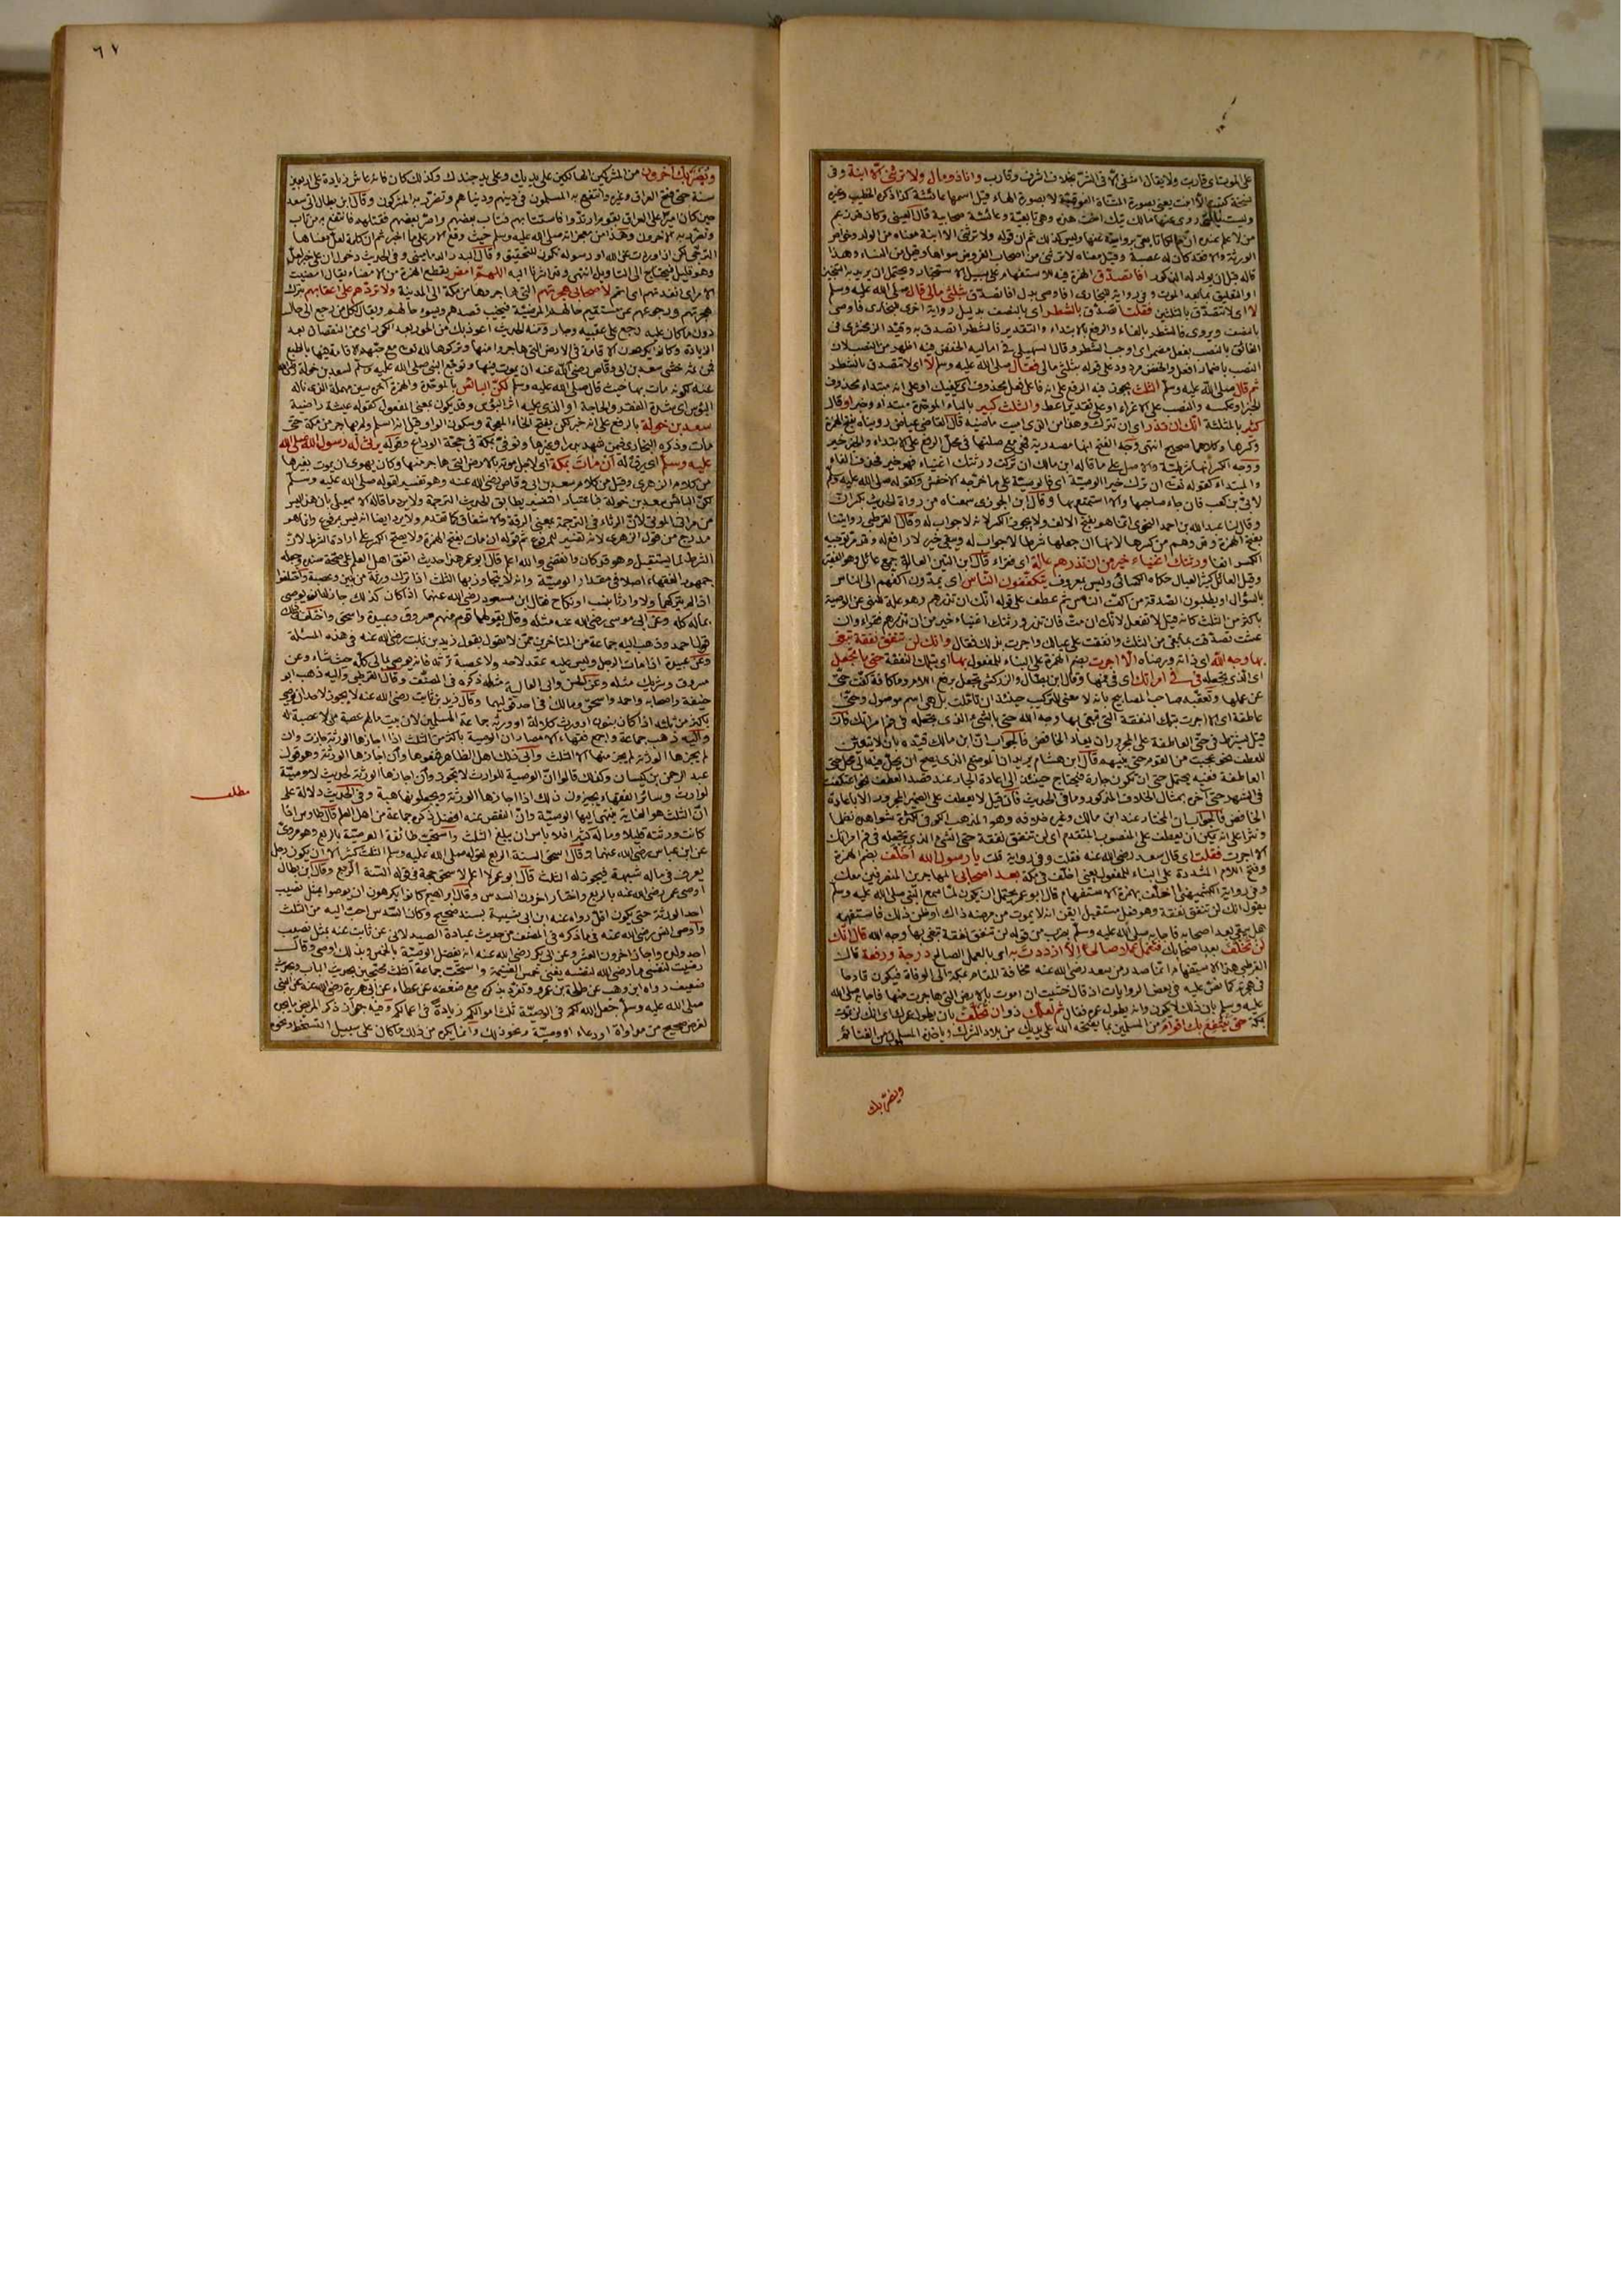 على الموت اى قاربت ولا يقال اشفى الا فى الشر بخلاف اشرف وقارب وانا ذو مال ولا ترثنى الا ابنة وفى
وليست بالتى روى عنها مالك تيك اخت هذه وهى تابعية وعائشة صحابية قال العينى
قاله قبل ان يولد له الذكور افأتصدق الهمزة فيه للاستفهام على سبيل الاستخبار ويحتمل ان يريد به التنجيز
او التعليق بما بعد الموت وفى رواية للبخارى افاوصى بدل افاتصدق بثلثى مالى قال صلى الله عليه وسلم
لا اى لا تتصدق بالثلثين فقلت اتصدق بالشطر اى بالنصف بدليل رواية اخرى للبخارى فاوصى
بالنصف ويروى فالشطر بالفاء والرفع بالابتداء والتقدير فالشطر اتصدق به وقيده الزمخشرى فى
الفائق بالنصب بفعل مضمر اى اوجب الشطر وقال السهيلى فى اماليه الخفض فيه اظهر من النصب لان
النصب باضمار افعل والخفض مردود على قوله بثلثى مالى فقال صلى الله عليه وسلم لا اى لا تتصدق بالشطر
ثم قال صلى الله عليه وسلم الثلث يجوز فيه الرفع على انه فاعل فعل محذوف اى يكفيك او على انه مبتداء محذوف
الخبر او عكسه والنصب على الاغراء او على تقدير اعط والثلث كبير بالباء الموحدة مبتداء وخبر او قال
كثير بالمثلثة انك ان تذر اى ان تترك وهذا من الذى اميت ماضيه قال القاضى عياض رويناه بفتح الهمزة
وكسرها وكلاهما صحيح انتهى وجه الفتح انها مصدرية فهى مع صلتها فى محل الرفع على الابتداء والخبر خير
ووجه الكسر انها شرطية والاصل على ما قاله ابن مالك ان تركت ورثتك اغنياء فهو خير فحذف الفاء
لابى بن كعب فان جاء صاحبها والا استمتع بها وقال ابن الجوزى سمعناه من رواة الحديث بكسر ان
وقال لنا عبد الله بن احمد النحوى انما هو بفتح الالف ولا يجوز الكسر لانه لا جواب له وقال القرطبى روايتنا
بفتح الهمزة وقد وهم من كسرها لانها ان جعلها شرطا لا جواب له ويبقى خير لا رافع له
ورثتك اغنياء خير من ان تذرهم عالة اى فقراء قال ابن التين العالة جمع عائل وهو الفقير
وقيل العائل الكثير العيال حكاه الكسائى وليس بمعروف يتكففون الناس اى يمدون اكفهم الى الناس
بالسؤال او يطلبون الصدقة من كف الناس ثم عطف على قوله انك ان تذرهم وهو علة للنهى عن الوصية
باكثر من الثلث كانه قيل لا تفعل لانك ان مت فان تذر ورثتك اغنياء خير من ان تذرهم فقراء وان
عشت تصدقت بما بقى من الثلث وانفقت على عيالك واجرت بذلك فقال وانك لن تنفق نفقة تبتغى
بها وجه الله اى ذاته ورضاه الا اجرت بضم الهمزة على البناء للمفعول بها اى بتلك النفقة حتى ما تجعل
اى الذى تجعله فى فى امراتك اى فى فمها وقال ابن بطال والزركشى تجعل برفع اللام وما كافة كفت حتى
عن عملها وتعقبه صاحب المصابيح بانه لا معنى للتركيب حينئذ ان تاملت بل هى اسم موصول وحتى
عاطفة اى الا اجرت بتلك النفقة التى تبتغى بها وجه الله حتى بالشىء الذى تجعله فى فم امراتك فان
قيل يشترط فى حتى العاطفة على المجرور ان يعاد الخافض فالجواب ان ابن مالك قيده بان لا تتعين
للعطف نحو عجبت من القوم حتى بنيهم قال ابن هشام يريد ان الموضع الذى يصح ان يحل فيه الى محل حتى
العاطفة فهى فيه يحتمل حتى ان تكون جارة فتحتاج حينئذ الى اعادة الجار عند قصد العطف نحو اعتكفت
فى الشهر حتى فى آخره بمثال الخلاف المذكور وما فى الحديث فان قيل لا يعطف على الضمير المجرور الا باعادة
الخافض فالجواب ان المختار عند ابن مالك وغيره خلافه وهو المذهب الكوفى لكثرة شواهده نظما
ونثرا على انه يمكن ان يعطف على المنصوب المتقدم اى لن تنفق نفقة حتى الشىء الذى تجعله فى فم امراتك
الا اجرت فقلت اى قال سعد رضى الله عنه فقلت وفى رواية قلت يا رسول الله اخلف بضم الهمزة
وفتح اللام المشددة على البناء للمفعول يعنى اخلف فى مكة بعد اصحابى المهاجرين المنصرفين معك
وفى رواية الكشميهنى أاخلف بهمزة الاستفهام قال ابو عمر يحتمل ان يكون لما سمع النبى صلى الله عليه وسلم
يقول انك لن تنفق نفقة وهو فعل مستقبل ايقن انه لا يموت من مرضه ذلك او ظن ذلك فاستفهمه
هل يبقى بعد اصحابه فاجابه صلى الله عليه وسلم بضرب من قوله لن تنفق نفقة تبتغى بها وجه الله قال انك
لن تخلف بعد اصحابك فتعمل عملا صالحا الا ازددت به اى بالعمل الصالح درجة ورفعة قال
القرطبى هذا الاستفهام انما صدر من سعد رضى الله عنه مخافة المقام بمكة الى الوفاة فيكون قادحا
فى هجرته كما نص عليه فى بعض الروايات اذ قال خشيت ان اموت بالارض التى هاجرت منها فاجابه صلى الله
عليه وسلم بان ذلك لا يكون وانه يطول عمره فقال ثم لعلك
بمكة حتى ينتفع بك اقوام من المسلمين بما يفتحه الله على يديك من بلاد الشرك وياخذه المسلمون من الغنائم
ويضر بك
٦٧
ويضر بك آخرون من المشركين الهالكين على يديك وعلى يد جندك وكذلك كان فانه عاش زيادة على اربعين
سنة حتى فتح العراق وغيره وانتفع به المسلمون فى دينهم ودنياهم وتضرر به المشركون وقال ابن بطال
حين كان اميرا على العراق بقوم ارتدوا فاستتابهم فتاب بعضهم واصر بعضهم فقتلهم فانتفع به من تاب
وتضرر به الآخرون وهذا من معجزاته صلى الله عليه وسلم حيث وقع الامر على ما اخبر ثم ان كلمة لعل معناها
الترجى لكن اذا وردت عن الله او رسوله تكون للتحقيق وقال البدر الدمامينى وفى الحديث دخول ان على خبر لعل
وهو قليل فيحتاج الى التاويل انتهى اللهم امض بقطع الهمزة من الامضاء يقال امضيت
الامر اى انفذته اى اتم لاصحابى هجرتهم التى هاجروها من مكة الى المدينة ولا تردهم على اعقابهم بترك
هجرتهم ورجوعهم عن مستقيم حالهم المرضية فيخيب قصدهم ويسوء حالهم ويقال لكل من رجع الى حال
دون ما كان عليه رجع على عقبيه وحار ومنه الحديث اعوذ بك من الحور بعد الكور اى من النقصان بعد
الزيادة وكانوا يكرهون الاقامة فى الارض التى هاجروا منها وتركوها لله تعالى مع حبهم
فمن ثمه خشى سعد بن ابى وقاص رضى الله عنه ان يموت فيها وتوجع النبى صلى الله عليه وسلم لسعد بن خولة
عنه لكونه مات بها حيث قال صلى الله عليه وسلم لكن البائس بالموحدة والهمزة
البؤس اى شدة الفقر والحاجة او الذى عليه اثر البؤس وقد يكون بمعنى المفعول كقوله عيشة راضية
سعد بن خولة بالرفع على انه خبر لكن بفتح الخاء المعجمة وسكون الواو وقيل انه اسلم ولم يهاجر من مكة حتى
مات وذكره البخارى فيمن شهد بدرا وغيرها وتوفى بمكة فى حجة الوداع وقوله يرثى له رسول الله صلى الله
عليه وسلم اى يرق له ان مات بمكة اى لاجل موته بالارض التى هاجر منها وكان يهوى ان يموت بغيرها
من كلام الزهرى وقيل من كلام سعد بن ابى وقاص رضى الله عنه وهو تفسير لقوله صلى الله عليه وسلم
لكن البائس سعد بن خولة
الشرط لما يستقبل وهو قد كان وانقضى والله اعلم قال ابو عمر هذا حديث اتفق اهل العلم على صحة سنده وجعله
جمهور الفقهاء اصلا فى مقدار الوصية وانه لا يتجاوز بها الثلث اذا ترك ورثة من بنين وعصبة واختلفوا
اذا لم يتركهما ولا وارثا بنسب او نكاح فقال ابن مسعود رضى الله عنه اذا كان كذلك جاز له ان يوصى
بماله كله وعن ابى موسى رضى الله عنه مثله وقال بقولهما قوم منهم مسروق وعبيدة واسحق واختلف فى ذلك
قول احمد وذهب اليه جماعة من المتاخرين ممن لا يقول بقول زيد بن ثابت رضى الله عنه فى هذه المسئلة
وعن عبيدة اذا مات الرجل وليس عليه عقد لاحد ولا عصبة ترثه فانه يوصى بماله كله حيث شاء وعن
مسروق وشريك مثله وعن الحسن وابى العالية مثله ذكره فى المصنف وقال القرطبى واليه ذهب ابو
حنيفة واصحابه واحمد واسحق ومالك فى احد قوليهما وقال زيد بن ثابت رضى الله عنه لا يجوز لاحد ان يوصى
باكثر من ثلثه اذا كان له بنون او ورث كلالة او ورثه جماعة المسلمين لان بيت مالهم عصبة من لا عصبة له
واليه ذهب جماعة واجمع فقهاء الامصار ان الوصية باكثر من الثلث اذا اجازها الورثة جازت وان
لم يجزها الورثة لم يجز منها الا الثلث وابى ذلك اهل الظاهر فمنعوها وان اجازها الورثة وهو قول
عبد الرحمن بن كيسان وكذلك قالوا ان الوصية للوارث لا تجوز وان اجازها الورثة لحديث لا وصية
لوارث وسائر الفقهاء يجيزون ذلك اذا اجازها الورثة ويجعلونها هبة وفى الحديث دلالة على
مطلب
ان الثلث هو الغاية فينتهى اليها الوصية وان النقص عنه افضل ذكره جماعة من اهل العلم قال طاوس اذا
كانت ورثته قليلا وماله كثيرا فلا باس ان يبلغ الثلث واستحب طائفة الوصية بالربع وهو مروى
عن ابن عباس رضى الله عنهما وقال اسحق السنة الربع لقوله صلى الله عليه وسلم الثلث كثير الا ان يكون رجل
يعرف فى ماله شبهة فيجوز له الثلث قال ابو عمر لا اعلم لاسحق حجة فى قوله السنة الربع وقال ابن بطال
اوصى عمر رضى الله عنه بالربع واختار آخرون السدس وقال ابراهيم كانوا يكرهون ان يوصوا بمثل نصيب
احد الورثة حتى يكون اقل رواه عنه ابن ابى شيبة بسند صحيح وكان السدس احب اليه من الثلث
واوصى انس رضى الله عنه فيما ذكره فى المصنف من حديث عبادة الصيدلانى عن ثابت عنه بمثل نصيب
احد ولده واجاز آخرون العشر وعن ابى بكر رضى الله عنه انه يفضل الوصية بالخمس وبذلك اوصى وقال
رضيت لنفسى ما رضى الله لنفسه يعنى خمس الغنيمة واستحب جماعة الثلث محتجين بحديث الباب وبحديث
ضعيف رواه ابن وهب عن طلحة بن عمرو وتفرد بذكره مع ضعفه عن عطاء عن ابى هريرة رضى الله عنه عن النبى
صلى الله عليه وسلم جعل الله لكم فى الوصية ثلث اموالكم زيادة فى اعمالكم وفيه جواز ذكر المريض ما يجد
لغرض صحيح من مداواة او دعاء او وصية ونحو ذلك وانما يكره من ذلك ما كان على سبيل التسخط ونحوه